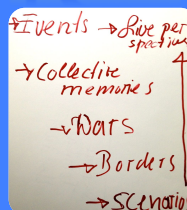 →Events → Live per
spectiv
→Collective
memories
→Wars
→Borders
→Scenario